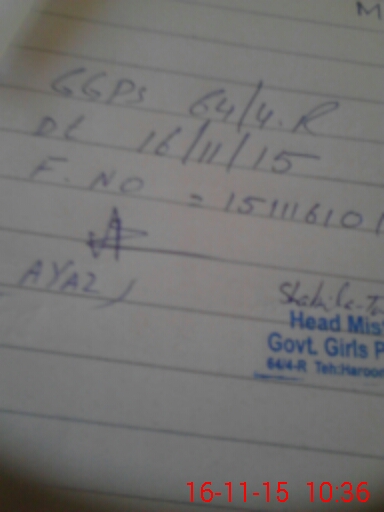 M
GGPS 64/4.R
DC 16/11/15
F. NO = 151116101
AYAZ
Head Mis
Govt. Girls P
64/4-R Teh:Haroon
16-11-15 10:36